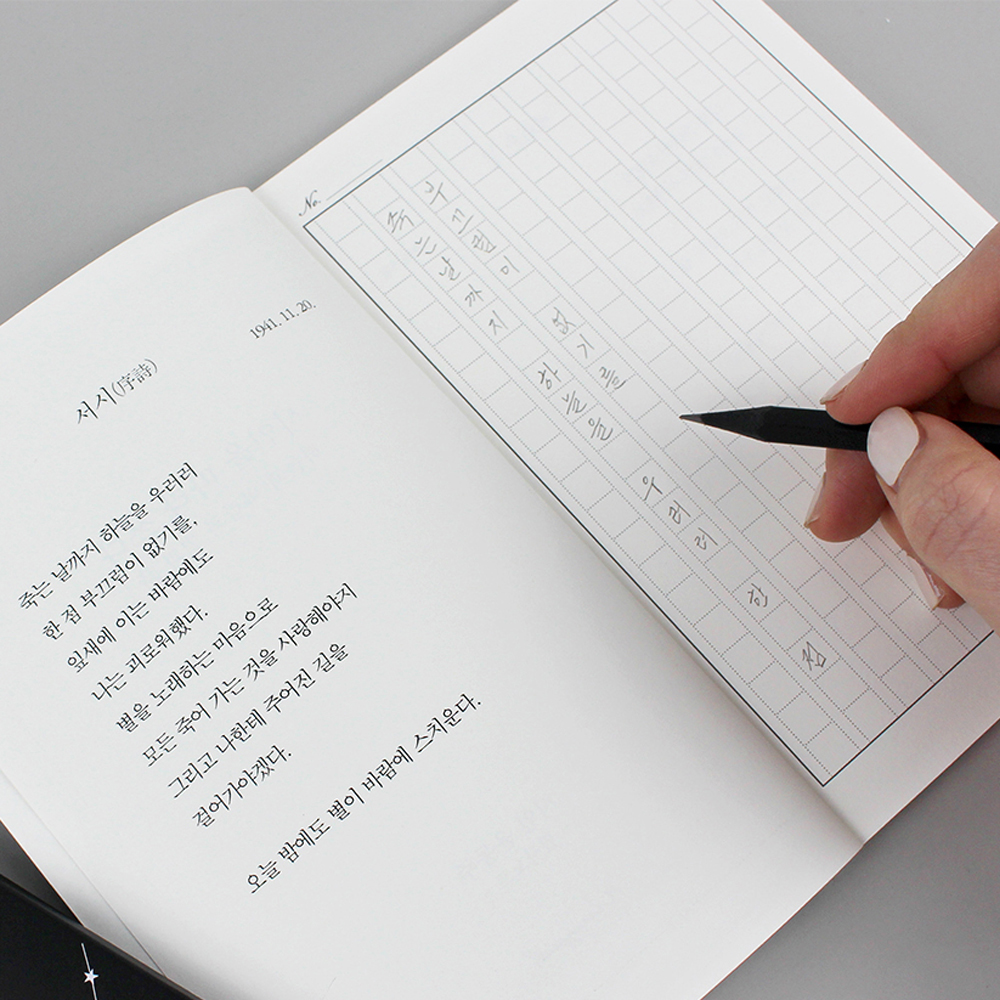 1941. 11. 20.
서시(序詩)
죽는 날까지 하늘을 우러러
한 점 부끄럼이 없기를,
잎새에 이는 바람에도
나는 괴로워했다.
별을 노래하는 마음으로
모든 죽어 가는 것을 사랑해야지
그리고 나한테 주어진 길을
걸어가야겠다.
오늘 밤에도 별이 바람에 스치운다.
No.
죽는날까지 하늘을 우러러 한 점
부끄럼이 없기를